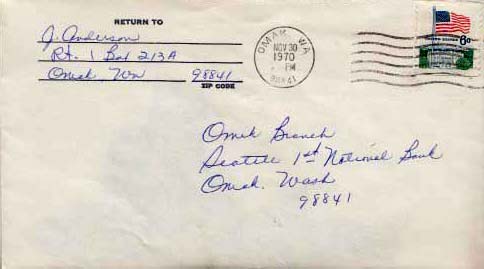 RETURN TO
J. Anderson
Rt. 1 Box 213A
Omak, Wn 98841
ZIP CODE
OMAK, WA
NOV 30
1970
PM
98841
6c
Omak Branch
Seattle 1st National Bank
Omak, Wash
98841